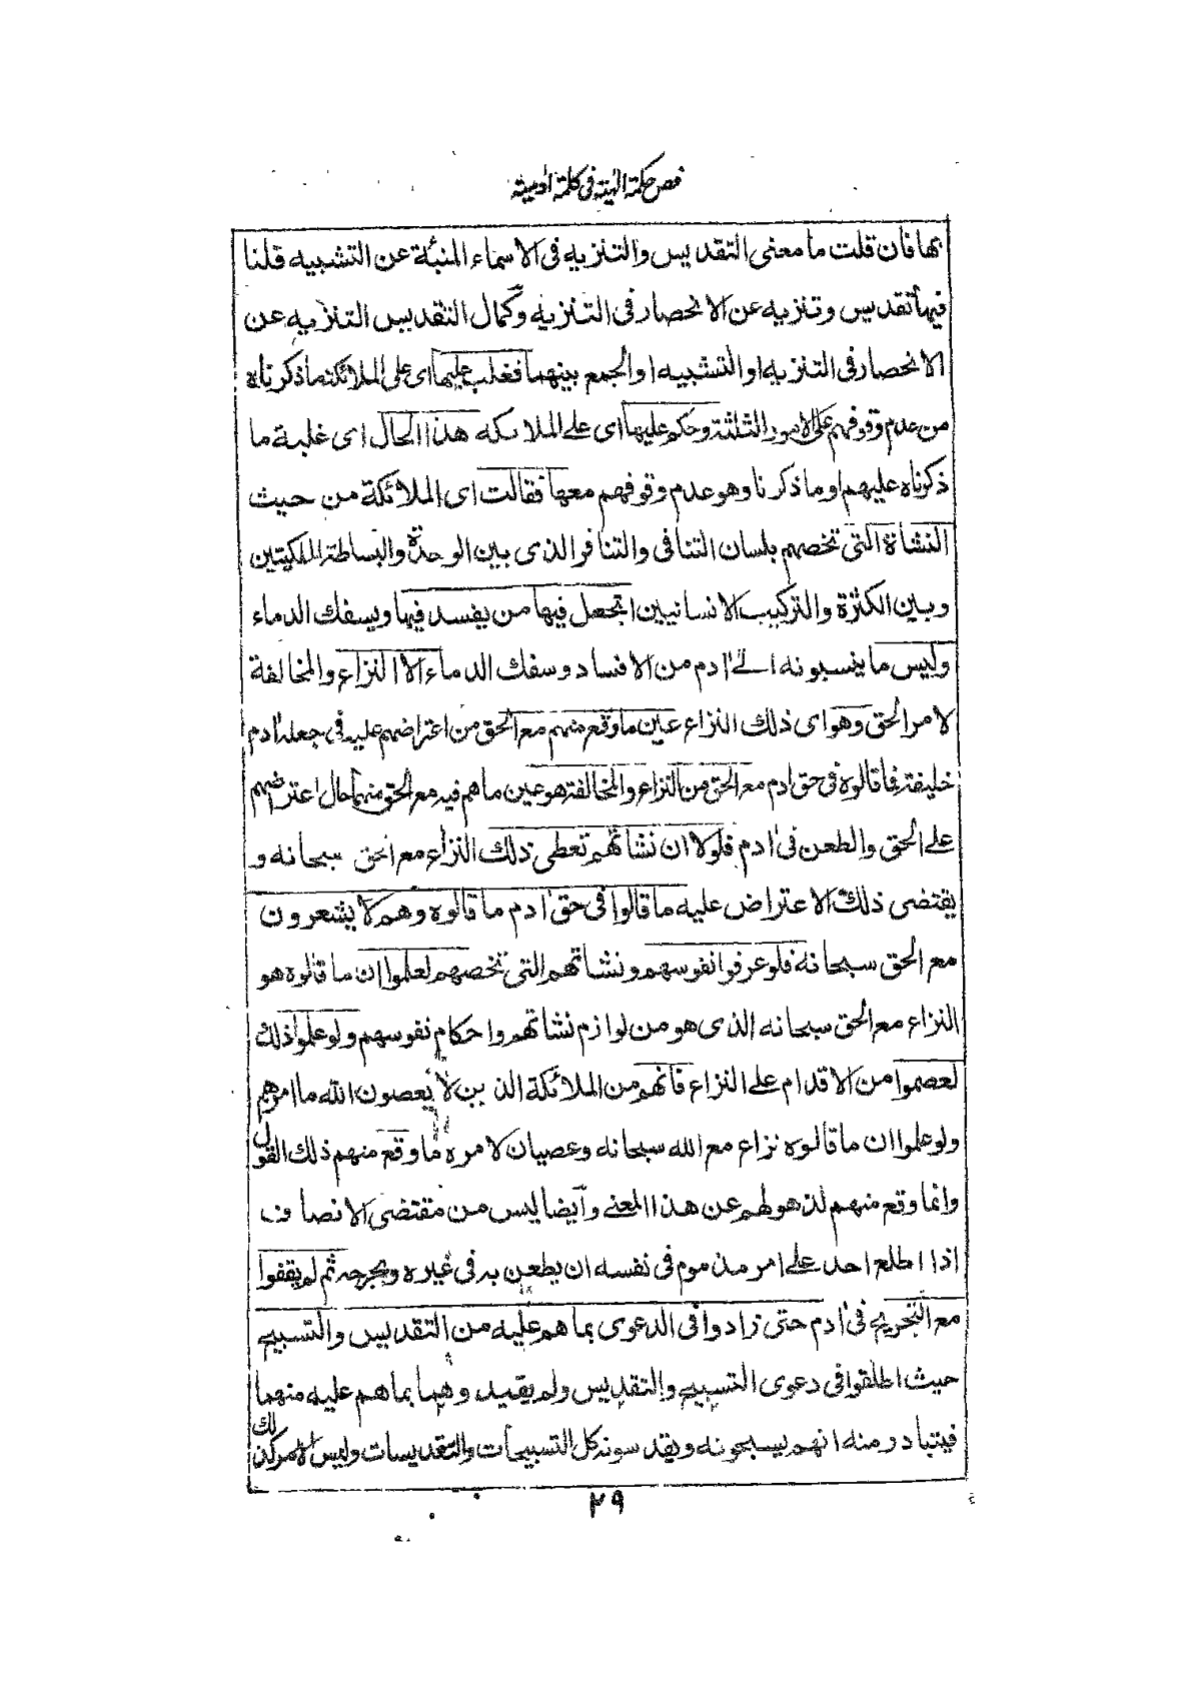 فص حكمة الهية فى كلمة ادمية
بها فان قلت ما معنى التقديس والتنزيه فى الاسماء المنبئة عن التشبيه قلنا
فيها تقديس وتنزيه عن الانحصار فى التنزيه وكمال التقديس التنزيه عن
الانحصار فى التنزيه او التشبيه او الجمع بينهما فغلب عليها اى على الملائكة ما ذكرناه
من عدم وقوفهم على الامور الثلثة وحكم عليها اى على الملائكه هذا الحال اى غلبة ما
ذكرناه عليهم او ما ذكرنا وهو عدم وقوفهم معها فقالت اى الملائكة من حيث
النشاة التى تخصهم بلسان التنافى والتنافر الذى بين الوحدة والبساطة الملكيتين
وبين الكثرة والتركيب الانسانيين اتجعل فيها من يفسد فيها ويسفك الدماء
وليس ما ينسبونه الى ادم من الافساد وسفك الدماء الا النزاع والمخالفة
لامر الحق وهو اى ذلك النزاع عين ما وقع منهم مع الحق من اعتراضهم عليه فى جعله ادم
خليفة فما قالوه فى حق ادم مع الحق من النزاع والمخالفة هو عين ما هم فيه مع الحق منهما حال اعتراضهم
على الحق والطعن فى ادم فلولا ان نشاتهم تعطى ذلك النزاع مع الحق سبحانه و
يقتضى ذلك الاعتراض عليه ما قالوا فى حق ادم ما قالوه وهم لا يشعرون
مع الحق سبحانه فلو عرفوا نفوسهم ونشاتهم التى تخصهم لعلموا ان ما قالوه هو
النزاع مع الحق سبحانه الذى هو من لوازم نشاتهم واحكام نفوسهم ولو علموا ذلك
لعصموا من الاقدام على النزاع فانهم من الملائكة الذين لا يعصون الله ما امرهم
ولو علموا ان ما قالوه نزاع مع الله سبحانه وعصيان لامره ما وقع منهم ذلك القول
وانما وقع منهم لذهولهم عن هذا المعنى وأيضا ليس من مقتضى الانصاف
اذا اطلع احد على امر مذموم فى نفسه ان يطعن به فى غيره ويجرحه ثم لم يقفوا
مع التجريح فى ادم حتى زادوا فى الدعوى بما هم عليه من التقديس والتسبيح
حيث اطلقوا فى دعوى التسبيح والتقديس ولم يقيدوهما بما هم عليه منهما
فيتبادر منه انهم يسبحونه ويقدسونه كل التسبيحات والتقديسات وليس الامر كذلك
٢٩